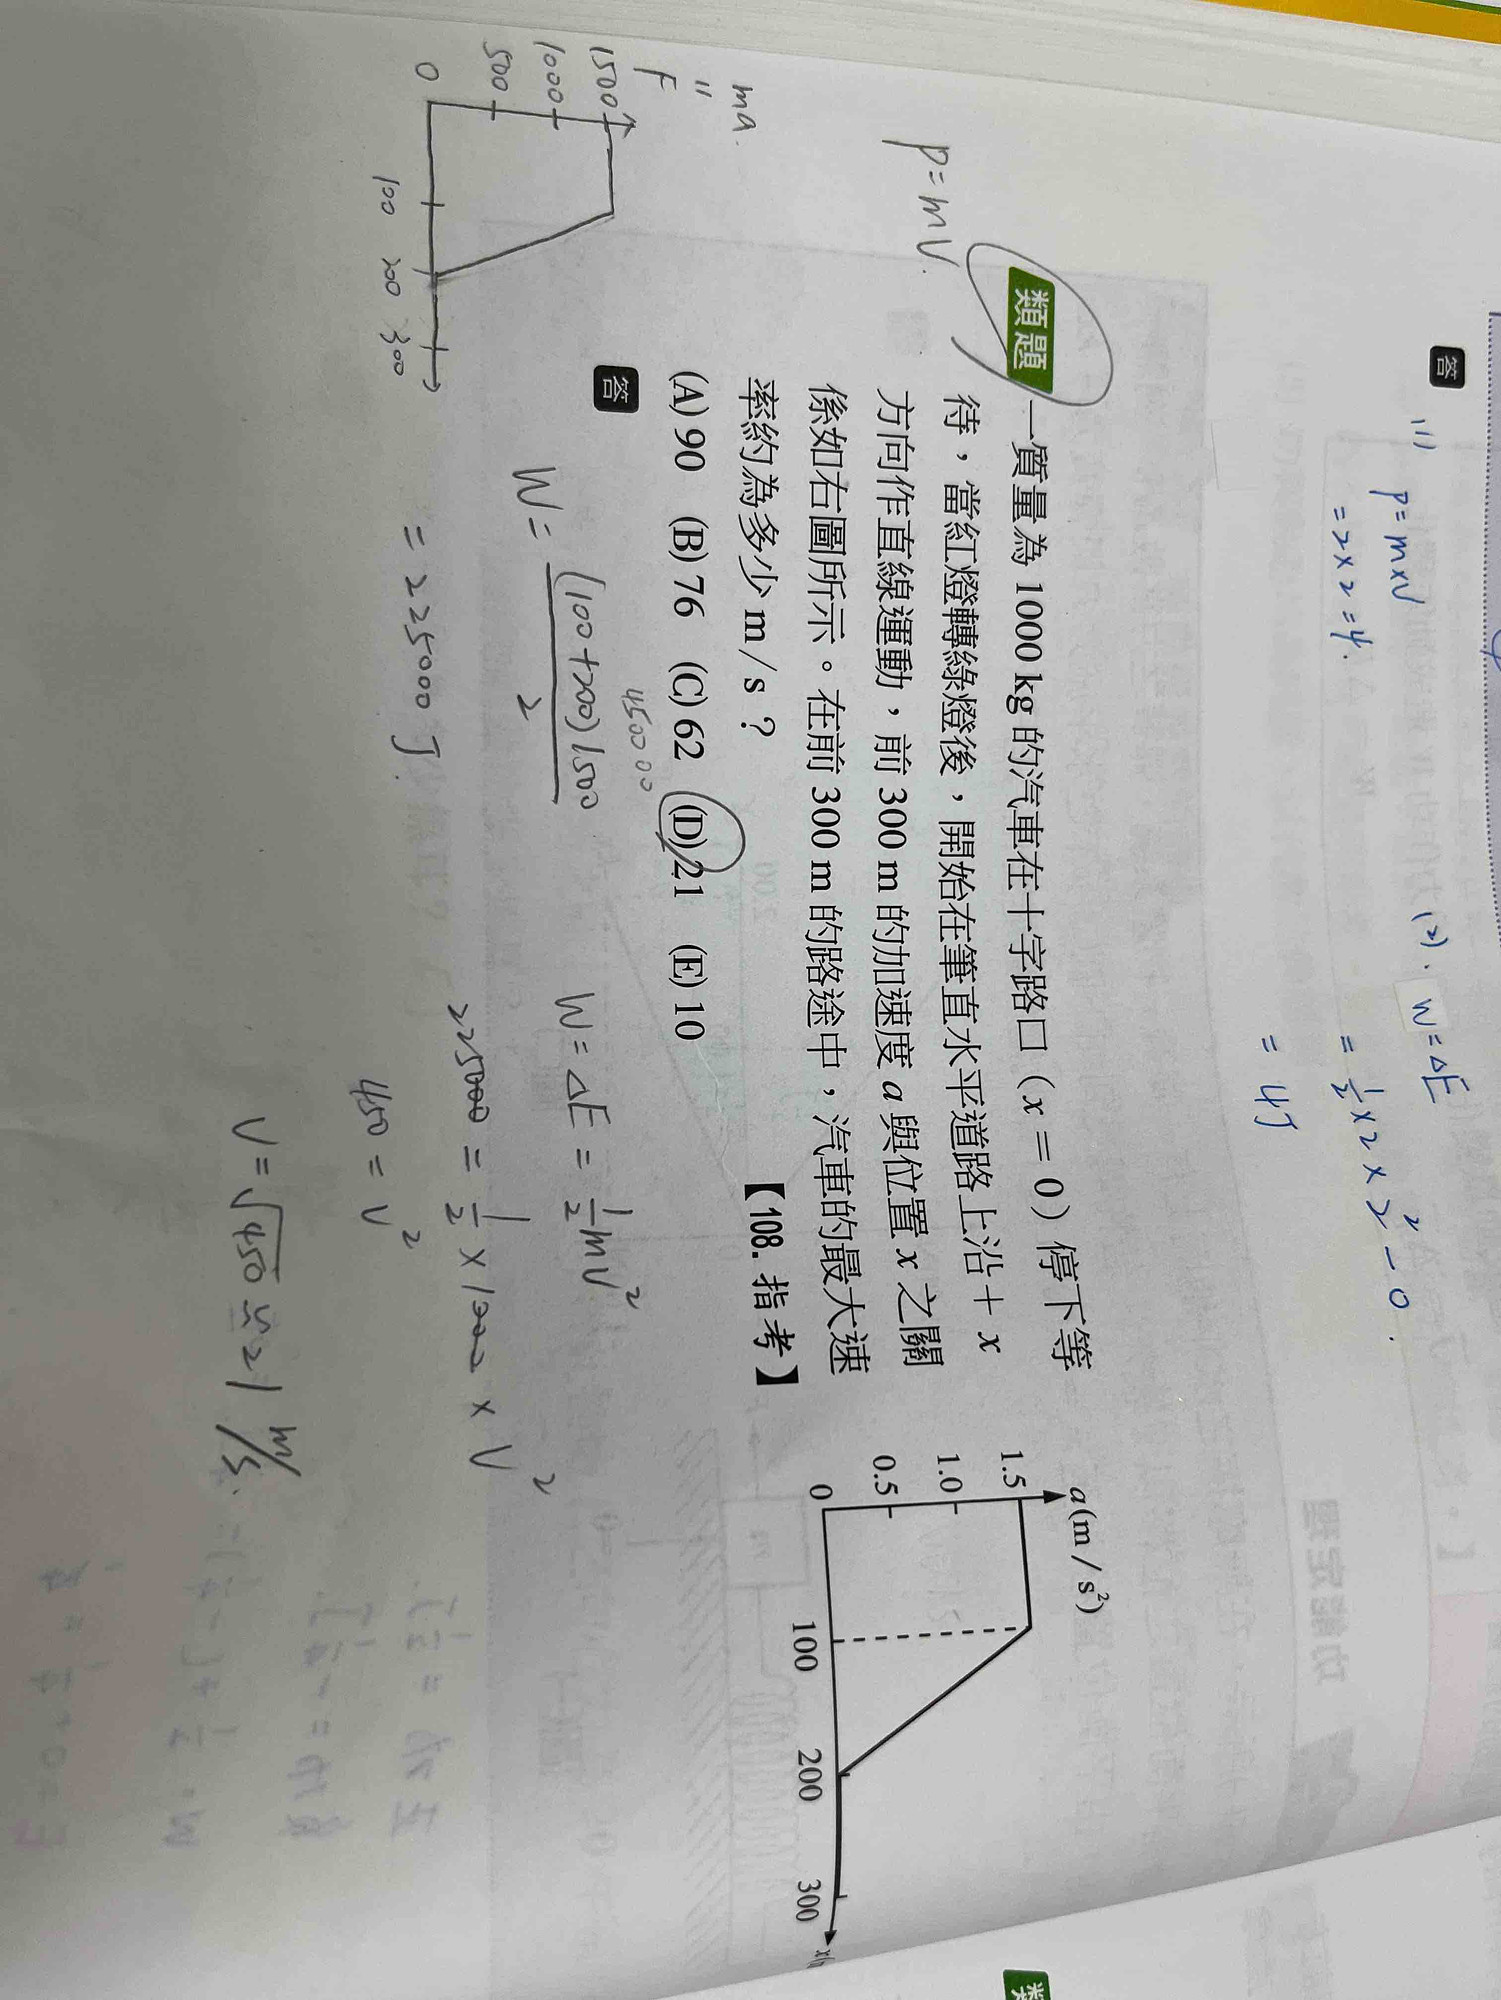 答
(1) P=m×V
=2×2=4.
(2). W=ΔE
=1/2×2×2²-0.
=4J
P=mV.
類題
一質量為 1000 kg 的汽車在十字路口（x＝0）停下等
待，當紅燈轉綠燈後，開始在筆直水平道路上沿＋x
方向作直線運動，前 300 m 的加速度 a 與位置 x 之關
係如右圖所示。在前 300 m 的路途中，汽車的最大速
率約為多少 m / s？
【108. 指考】
(A) 90 (B) 76 (C) 62 (D) 21 (E) 10
a(m / s²)
1.5
1.0
0.5
0
100
200
300
答
ma.
=
F
1500
1000
500
0
100 200 300
450000
W = (100+200)1500 / 2
= 225000 J.
W=ΔE=1/2mV²
225000=1/2×1000×V²
450=V²
V=√450≒21 m/s.
類